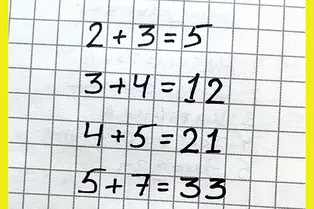 2 + 3 = 5
3 + 4 = 12
4 + 5 = 21
5 + 7 = 33